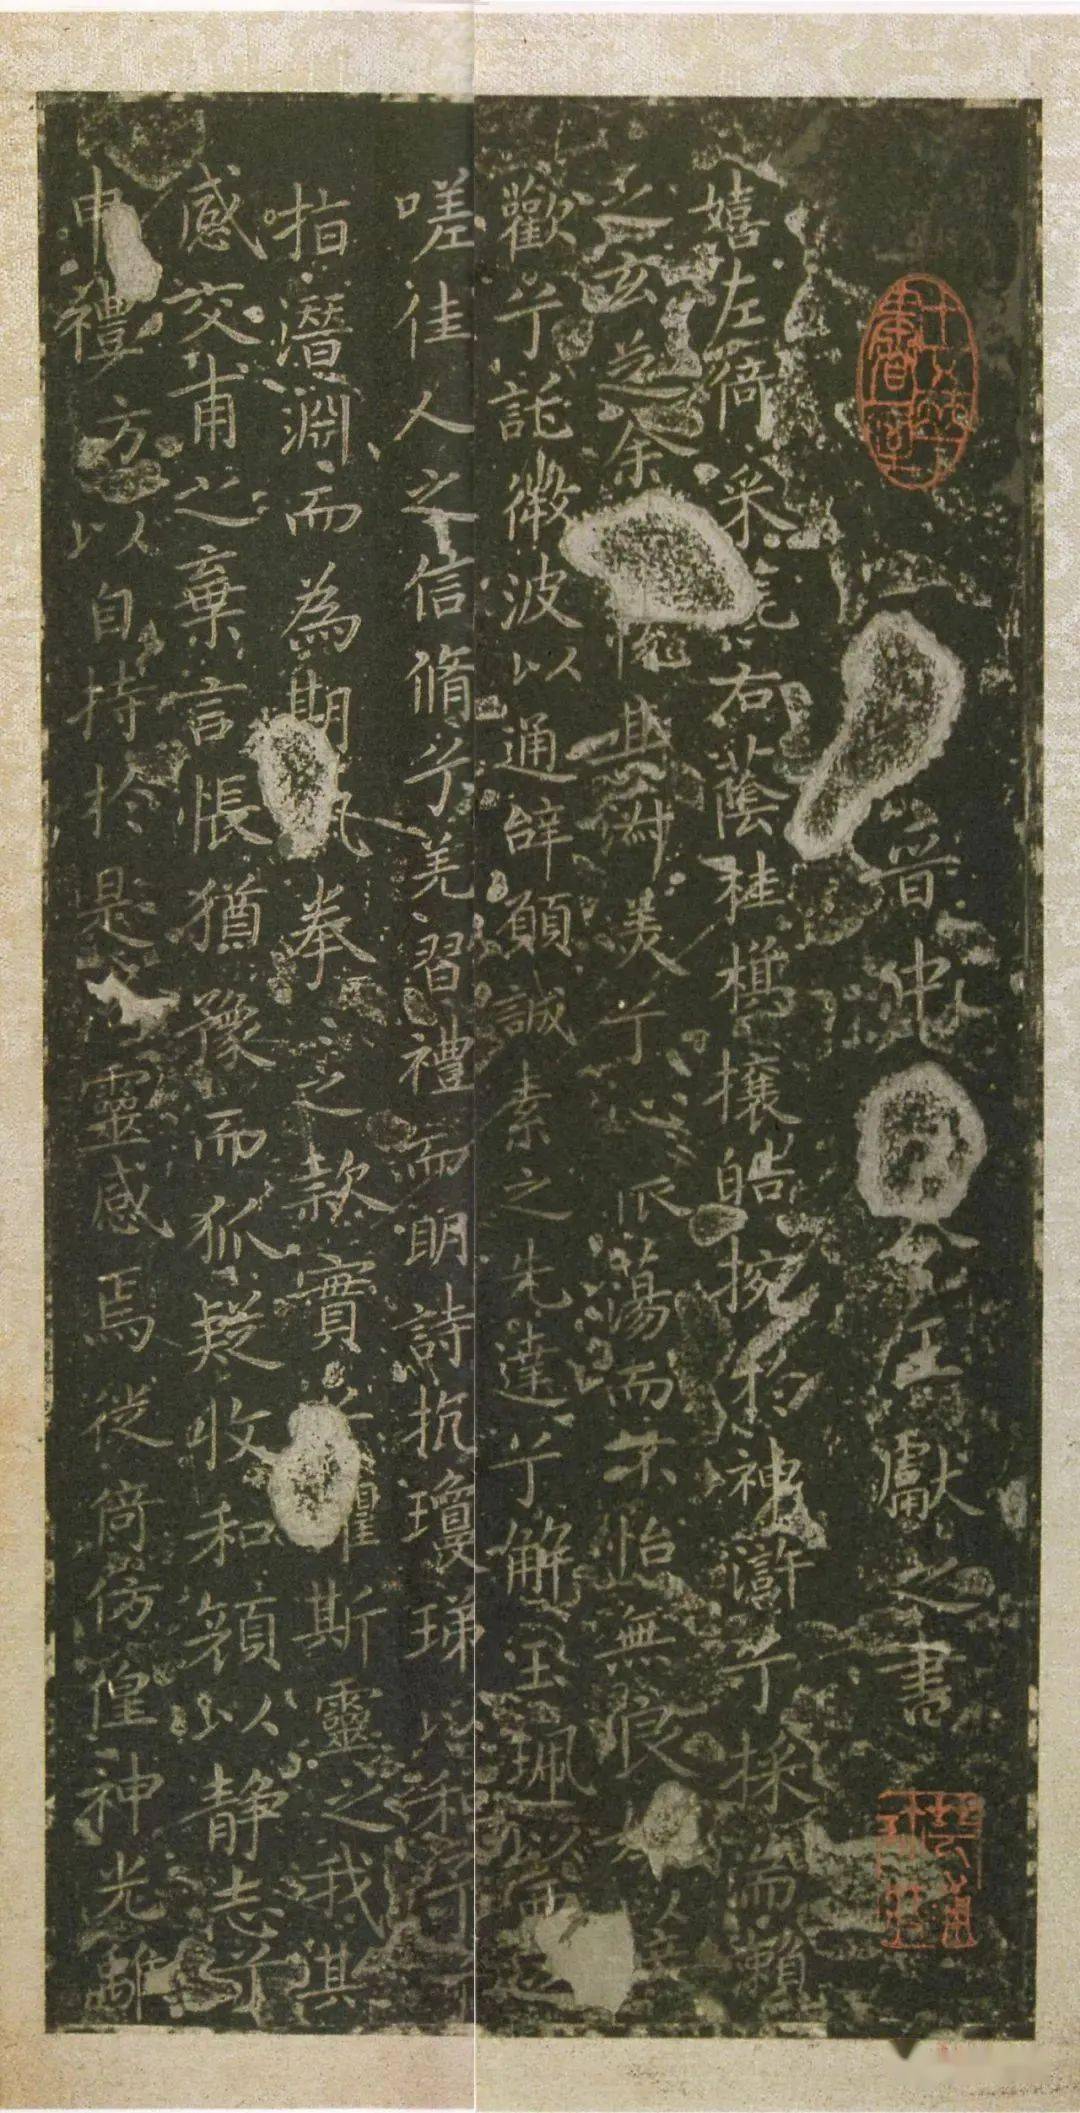 晉中令王獻之書
嬉左倚采旄右蔭桂旗攘皓捥於神滸兮採湍瀨
之玄芝余悅其淑美兮心振蕩而不怡無良以接
歡兮託微波以通辭願誠素之先達兮解玉珮以要之
嗟佳人之信脩兮羌習禮而明詩抗瓊珶以和予兮
指潛淵而為期執拳之款實兮懼斯靈之我欺
感交甫之棄言悵猶豫而狐疑收和顏以靜志兮
申禮防以自持於是靈感焉徙倚傍偟神光離